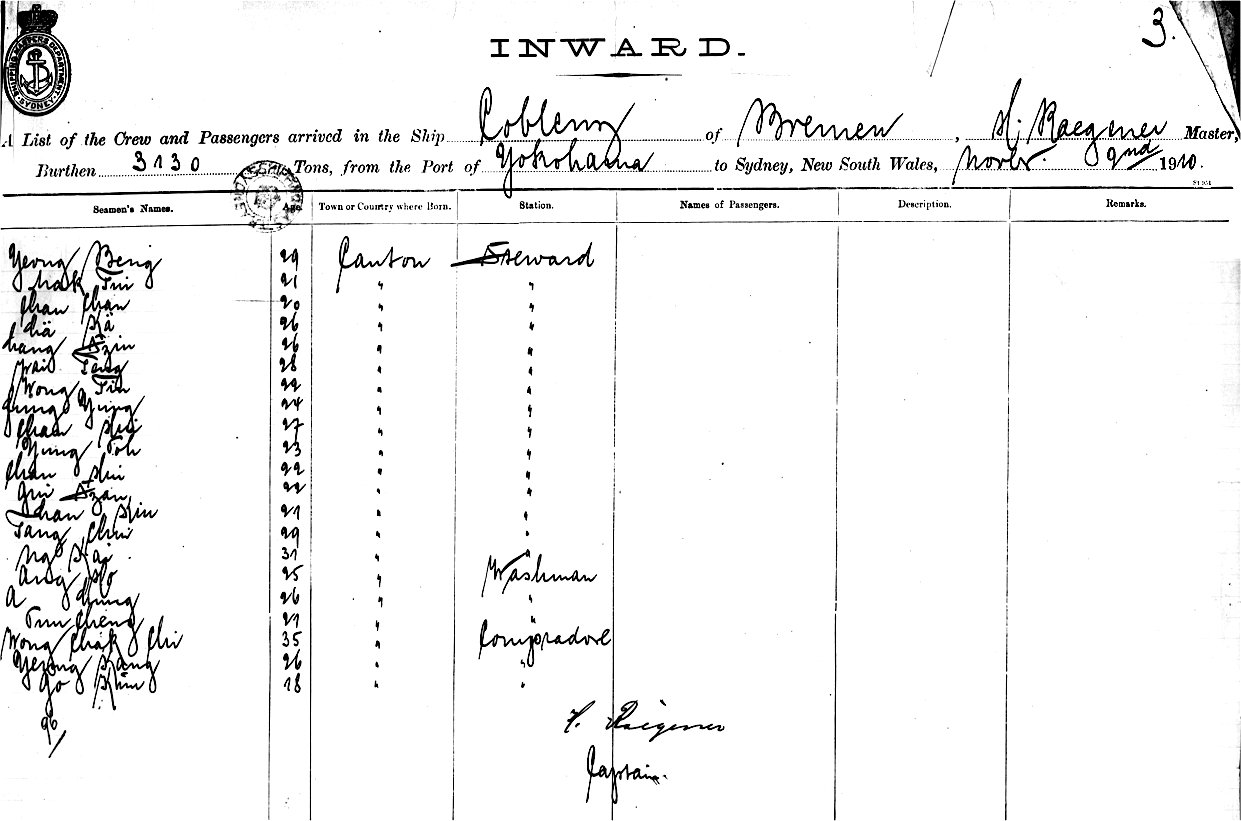 SHIPPING MASTERS DEPARTMENT SYDNEY
3.
INWARD.
A List of the Crew and Passengers arrived in the Ship Coblenz of Bremen, H. Raegener Master,
Burthen 3130 Tons, from the Port of Yokohama to Sydney, New South Wales, Novbr. 2nd 1910.
Seamen's Names. Age Town or Country where Born. Station. Names of Passengers. Description. Remarks.
Yeong Beng 29 Canton Steward
Mak Tin 21 " "
Chan Chan 20 " "
26 " "
26 " "
Wai Tang 28 " "
Wong Tin 22 " "
Yung 24 " "
Chan 27 " "
Yung Toh 23 " "
Chan 22 " "
22 " "
Chan 21 " "
Tang Chui 29 " "
Ng Kai 31 " "
Ang Ho 25 " Washman
A Hung 26 " "
Tun Cheng 21 " "
Wong Chak Chi 35 " Compradore
Yeong Kang 26 " "
Go 18 " "
H. Raegener
Captain.